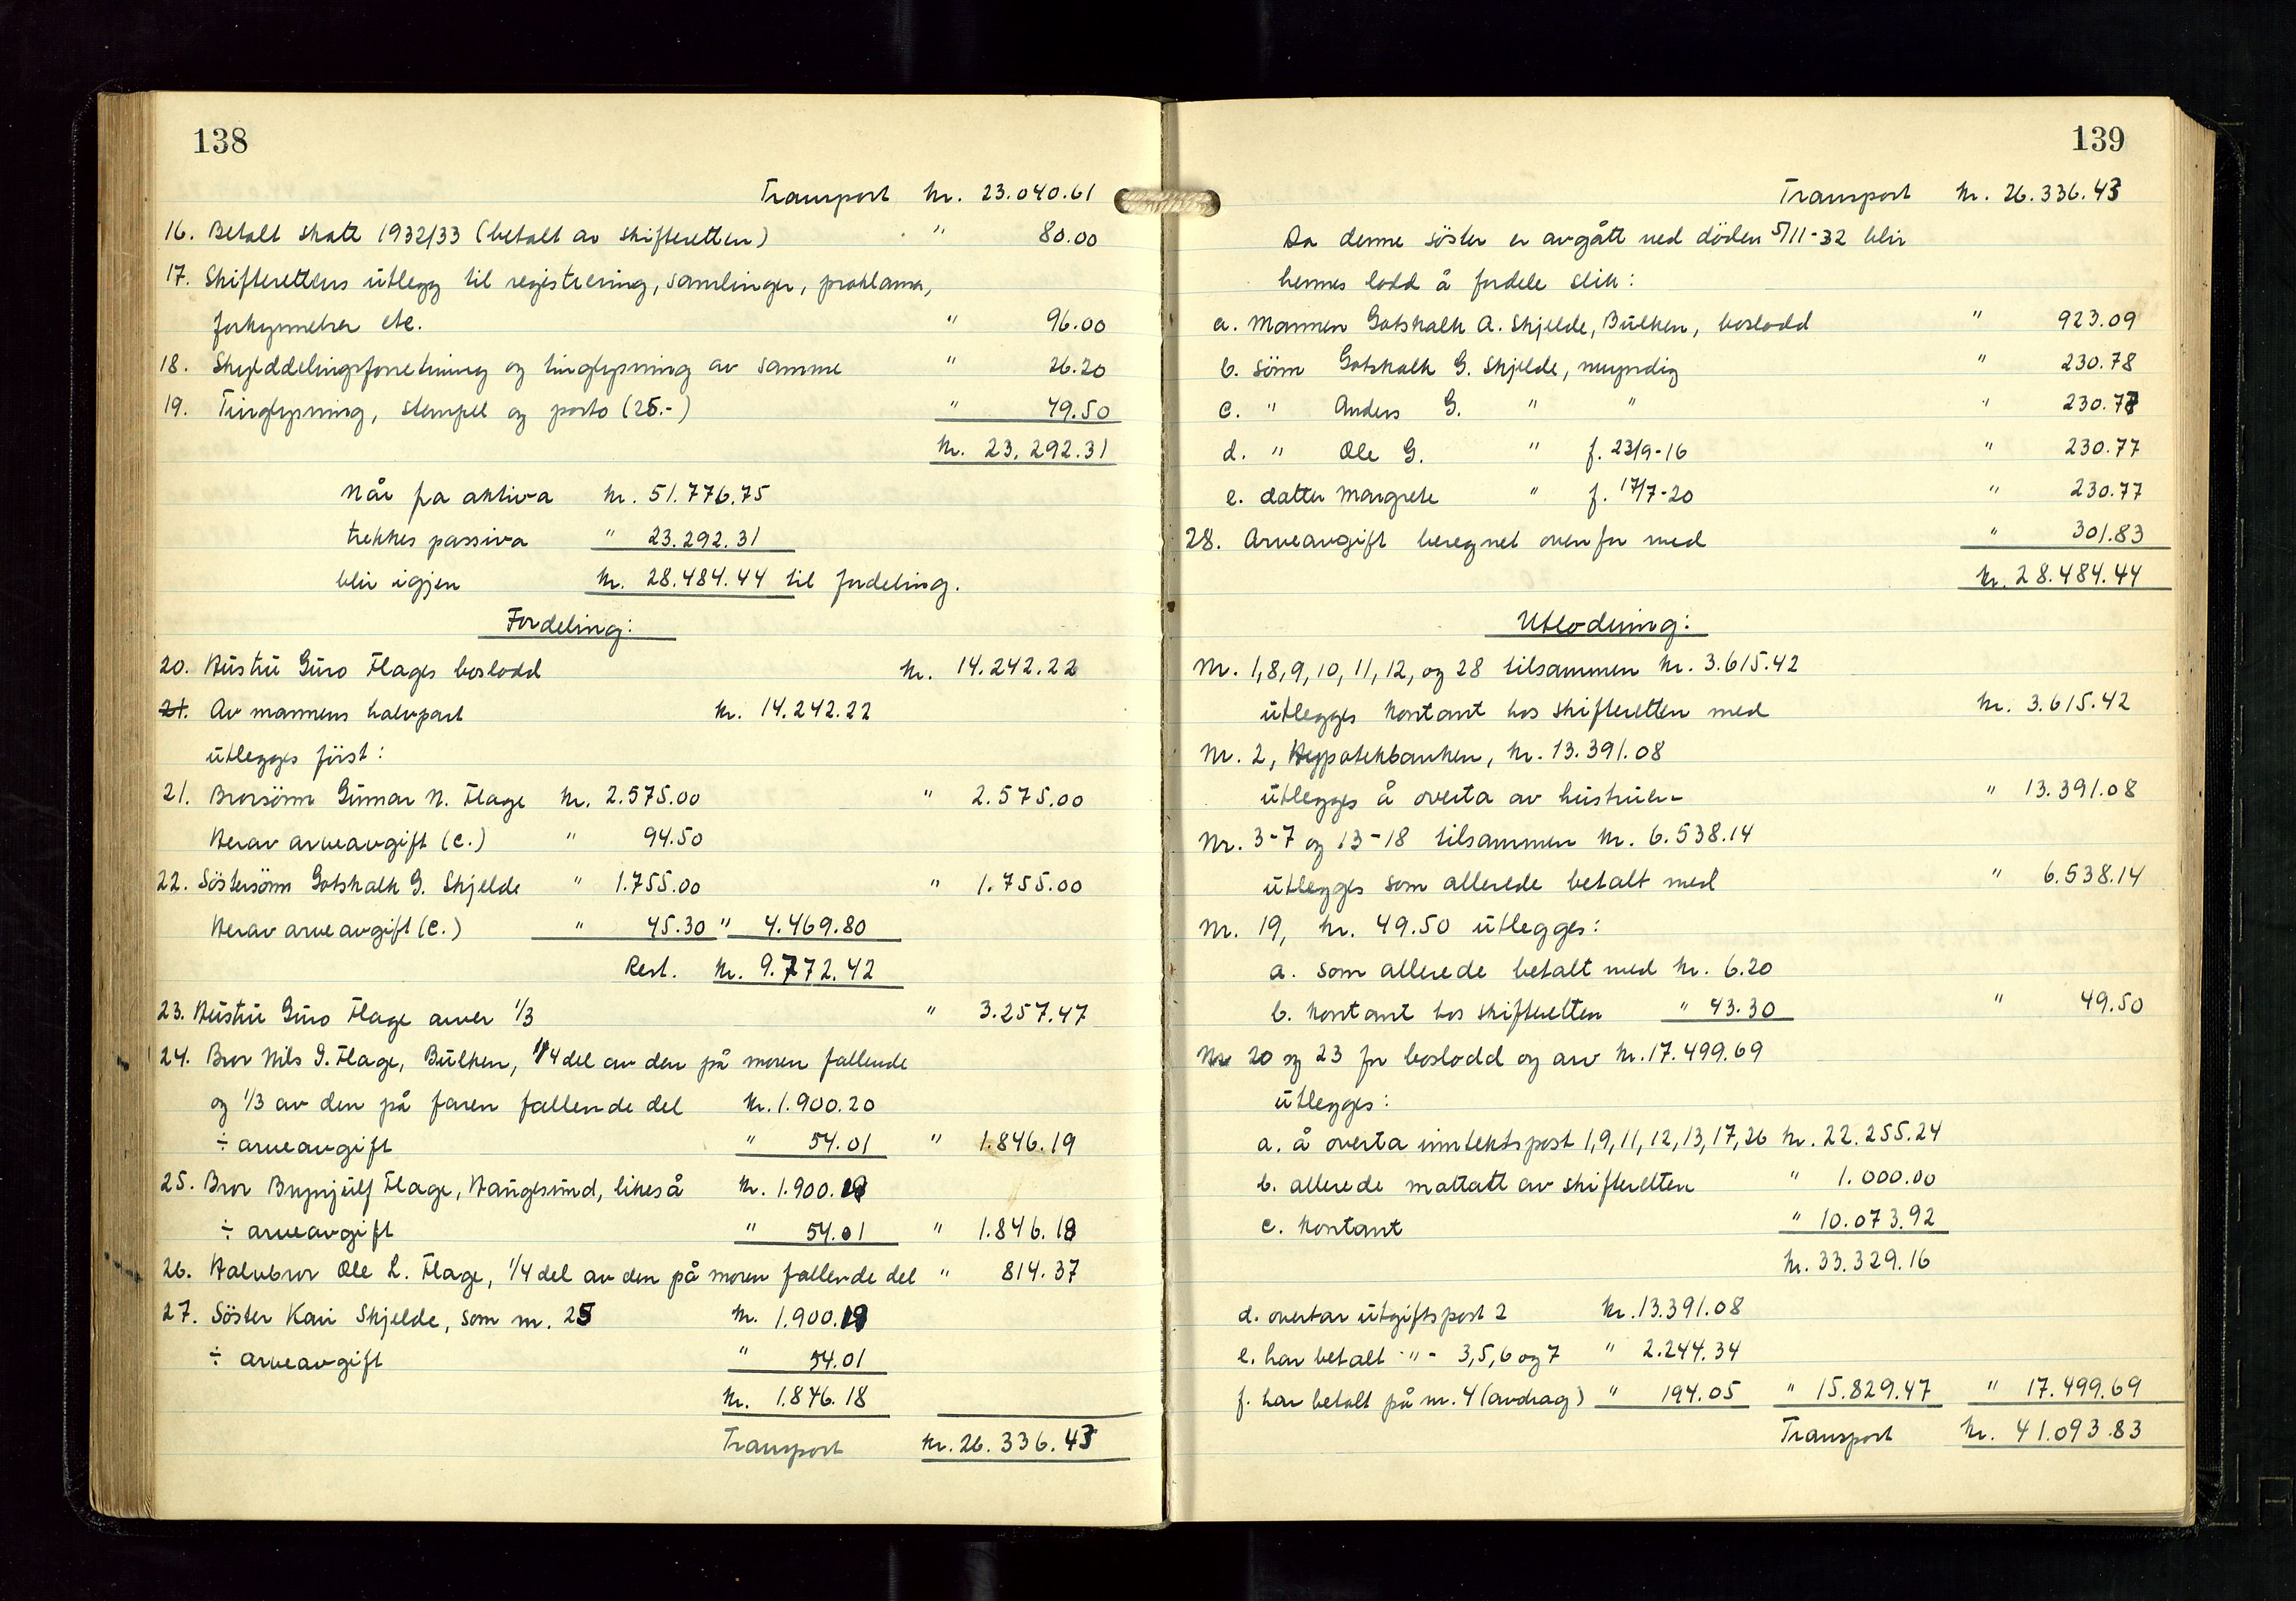 138
Transport kr. 23.040.61
16. Betalt skatt 1932/33 (betalt av skifteretten) " 80.00
17. Skifterettens utlegg til registrering, samlinger, proklama,
forkynnelser etc. " 96.00
18. Skylddelingsforretning og tinglysning av samme " 26.20
19. Tinglysning, stempel og porto (25.-) " 49.50
kr. 23.292.31
Når fra aktiva kr. 51.776.75
trekkes passiva " 23.292.31
blir igjen kr. 28.484.44 til fordeling.
Fordeling:
20. Hustru Guro Flages boslodd kr. 14.242.22
21. Av mannens halvpart kr. 14.242.22
utlegges først:
21. Brorsønn Gunnar N. Flage kr. 2.575.00 " 2.575.00
Herav arveavgift (c.) " 94.50
22. Söstersönn Gotskalk G. Skjelde " 1.755.00 " 1.755.00
Herav arveavgift (c.) " 45.30 " 4.469.80
Rest. kr. 9.772.42
23. Hustru Guro Flage arver 1/3 " 3.257.47
24. Bror Nils G. Flage, Bulken, 1/4 del av den på moren fallende
og 1/3 av den på faren fallende del kr. 1.900.20
÷ arveavgift " 54.01 " 1.846.19
25. Bror Brynjulf Flage, Haugesund, likeså kr. 1.900.19
÷ arveavgift " 54.01 " 1.846.18
26. Halvbror Ole L. Flage, 1/4 del av den på moren fallende del " 814.37
27. Söster Kari Skjelde, som nr. 25 kr. 1.900.19
÷ arveavgift " 54.01
kr. 1.846.18
Transport kr. 26.336.43
139
Transport kr. 26.336.43
Da denne söster er avgått ved döden 5/11-32 blir
hennes lodd å fordele slik:
a. Mannen Gotskalk A. Skjelde, Bulken, boslodd " 923.09
b. sönn Gotskalk G. Skjelde, myndig " 230.78
c. " Anders G. " " " 230.77
d. " Ole G. " f. 23/9-16 " 230.77
e. datter Margrete " f. 17/7-20 " 230.77
28. Arveavgift beregnet ovenfor med " 301.83
kr. 28.484.44
Utlodning:
Nr. 1,8,9,10,11,12, og 28 tilsammen kr. 3.615.42
utlegges kontant hos skifteretten med kr. 3.615.42
Nr. 2, Hypotekbanken, kr. 13.391.08
utlegges å overta av hustruen " 13.391.08
Nr. 3-7 og 13-18 tilsammen kr. 6.538.14
utlegges som allerede betalt med " 6.538.14
Nr. 19, kr. 49.50 utlegges:
a. som allerede betalt med kr. 6.20
b. kontant hos skifteretten " 43.30 " 49.50
Nr 20 og 23 for boslodd og arv kr. 17.499.69
utlegges:
a. å overta inntektspost 1,9,11,12,13,17,26 kr. 22.255.24
b. allerede mottatt av skifteretten " 1.000.00
c. kontant " 10.073.92
kr. 33.329.16
d. overtar utgiftspost 2 kr. 13.391.08
e. har betalt -"- 3,5,6 og 7 " 2.244.34
f. har betalt på nr. 4 (avdrag) " 194.05 " 15.829.47 " 17.499.69
Transport kr. 41.093.83